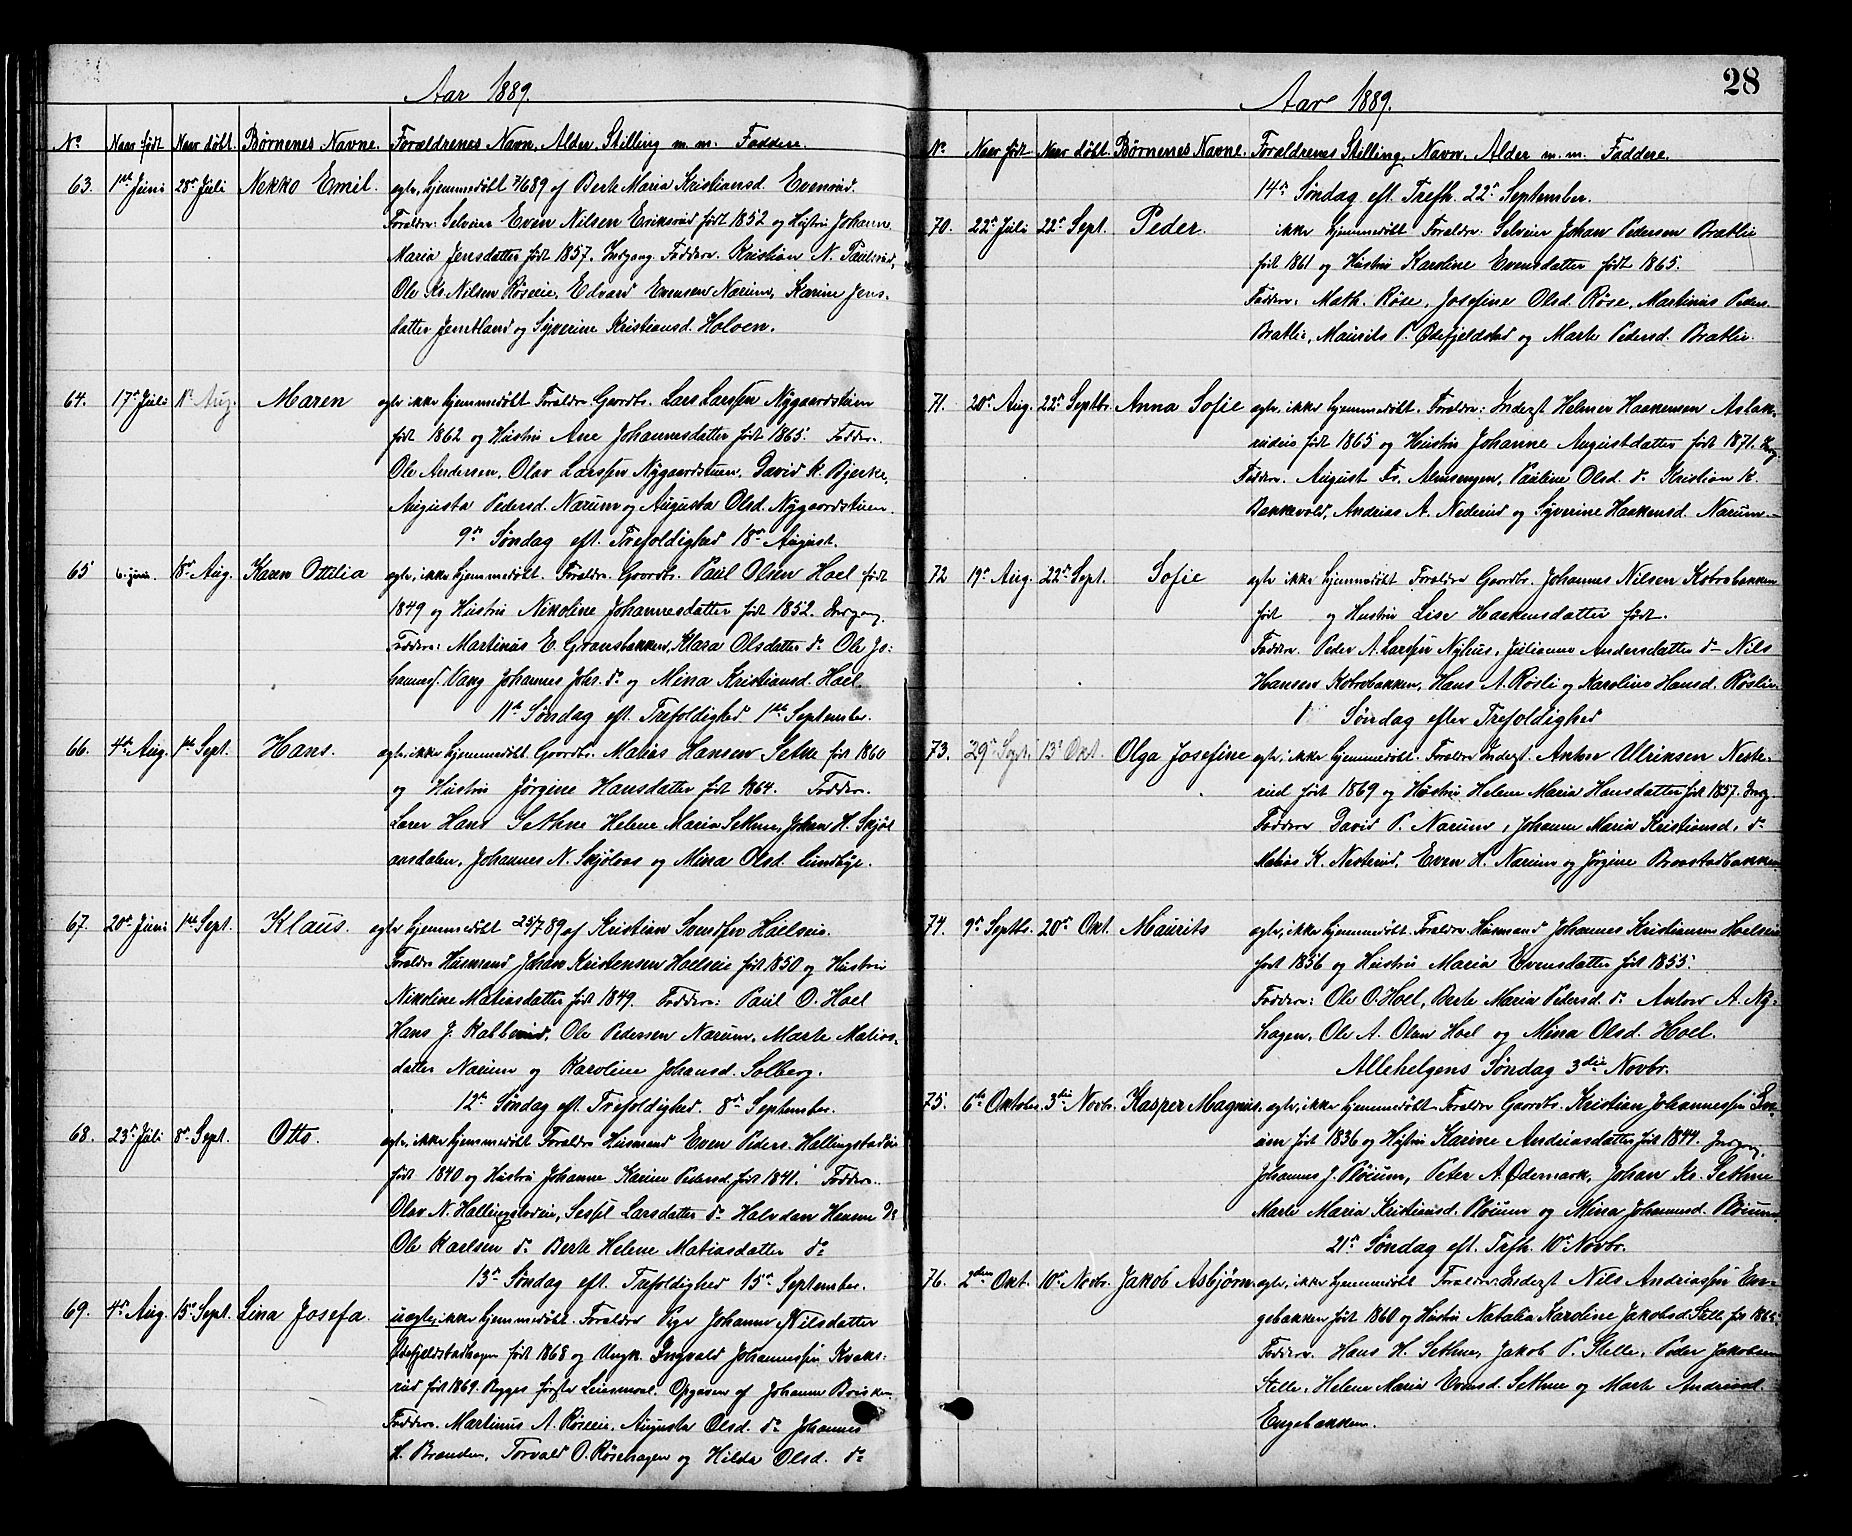 Aar 1889.
No Naar født Naar døbt. Børnenes Navne. Foraldrenes Navn, Alder, Stilling m. m. Faddere.
63. 1ste Juni 28de Juli Nekko Emil. egte, hjemmedøbt af Berte Maria Kristiansd. Evenrud.
Foraldre: Selveier Even Nilsen Eriksrud født 1852 og Hustru Johanne
Maria Jensdatter født 1857. Indgang. Faddere. Kristian N. Paulsrud,
Ole Kr. Nilsen Røseeie, Edvard Evensen Narum, Karine Jens-
datter Jensetland og Syverine Kristiansd. Holven.
64. 17de Juli Aug. Maren egte ikke hjemmedøbt Foraldre. Gaardbr. Lars Larssen Nygaardstuen
født 1862 og Hustru Ane Johannesdatter født 1865. Faddere.
Ole Andersen, Olav Larssen Nygaardstuen, David K. Bjerke,
Augusta Pedersd. Narum og Augusta Olsd. Nygaardstuen.
9de Søndag eft. Trefoldighed 18de August.
65 6. juni. 18de Aug. Karen Ottilia egte, ikke hjemmedøbt. Foraldre. Gaardb. Paul Olsen Hoel født
1849 og Hustru Nikoline Johannesdatter født 1852. Indgang.
Faddere: Martinus E. Gransbakken, Klara Olsdatter do Ole Jo-
hannesf. Vang Johannes Johs. do og Mina Kristiansd. Hoel.
11te Søndag eft. Trefoldighed 1ste September.
66. 4de Aug. 1ste Sept. Hans. egte, ikke hjemmedøbt. Gaardb. Matias Hansen Sethne født 1860
og Hustru Jørgine Hansdatter født 1864. Faddere.
Larer Hans Sethne Helene Maria Sethne, Johan H. Skjøl
aasdalen, Johannes N. Skjølaas og Mina Olsd. Lundbye.
67. 20de Juni 1ste Sept. Klaus. egte hjemmedøbt 25/7 89 af Kristian Svendsen Hoelseie.
Foraldre Husmand Johan Kristensen Hoelseie født 1850 og Hustru
Nikoline Matiasdatter født 1849. Faddere: Paul O. Hoel
Hans J. Kabberud, Ole Pedersen Narum, Marte Matias-
datter Narum og Karoline Johansd. Solberg.
12te Søndag eft. Trefoldighed. 8de September.
68. 23de Juli 8de Sept. Otto. egte, ikke hjemmedøbt Foraldre Husmand Even Peders. Hallingstadeie
født 1840 og Hustru Johanne Karine Pedersd. født 1841. Faddere.
Olav N. Hallingstadeie, Sessel Larsdatter do Halvdan Hansen Do
Ole Karlsen do Berte Helene Matiasdatter do
13de Søndag eft. Trefoldighed 15de September.
69. 4de Aug. 15de Sept. Lina Josefa. uegte, ikke hjemmedøbt. Foraldre Pige Johanne Nilsdatter
Ødefjeldstadhagen født 1868 og Ungk. Ingvald Johannessen Kvaks-
rud født 1869. Begges første Leiermaal. Opgaven af Johanne
Faddere. Martinus A. Røseeie, Augusta Olsd. do Johannes
H. Branden, Torvald O. Røsehagen og Hilda Olsd. do
28
Aar 1889.
No Naar født. Naar døbt. Børnenes Navne. Foraldrenes Stilling, Navn, Alder m. m. Faddere.
14de Søndag eft. Trefh. 22de September.
70. 22de Juli 22de Sept. Peder. ikke hjemmedøbt Foraldre: Selveier Johan Pedersen Bratlie
født 1861 og Hustru Karoline Evensdatter født 1865.
Faddere: Math. Røse, Josefine Olsd. Røse, Martinus Peders.
Bratlie, Maurits P. Ødefjeldstad og Marte Pedersd. Bratlie.
71. 20de Aug. 22de Septbr. Anna Sofie egte, ikke hjemmedøbt. Foraldre: Inderst Helmer Haakensen Aslak-
rudeie født 1865 og Hustru Johanne Augustdatter født 1871. Indg.
Faddere. August Fr. Almsengen, Pauline Olsd. do Kristian K.
Bakkevold, Andrias A. Nederud og Syverine Haakensd. Narum.
72 19de Aug. 22de Sept. Sofie egte ikke hjemmedøbt Foraldre Gaardb. Johannes Nilsen Kobrobakken
født og Hustru Lise Haakensdatter født.
Faddere. Peder A. Larssen Nyhus, Julianne Andersdatter do Nils
Hansen Kobrobakken, Hans A. Røsli og Karoline Hansd. Røslie.
1 Søndag efter Trefoldighed
73. 29de Sept. 13de Okt. Olga Josefine egte, ikke hjemmedøbt. Foraldre Inderst. Anton Ulriksen Neste-
rud født 1869 og Hustru Helene Maria Hansdatter født 1857. Indg.
Faddere David P. Narum, Johanne Maria Kristiansd. do
Matias K. Nesterud, Even H. Narum og Jørgine Braastadbakken
74. 9de Septb. 20de Okt. Maurits egte, ikke hjemmedøbt. Foraldre. Husmand Johannes Kristiansen Hoelseie
født 1856 og Hustru Maria Evensdatter født 1855.
Faddere: Ole O. Hoel, Berte Maria Pedersd. do Anton A. Ny-
hagen, Ole A. Olsen Hoel og Mina Olsd. Hoel.
Allehelgens Søndag 3die Novbr.
75. 6te Oktober 3die Novbr. Kasper Magnus. egte, ikke hjemmedøbt Foraldre Gaardb. Kristian Johannessen
født 1836 og Hustru Karine Andriasdatter født 1844. Indgang.
Johannes J. Pløium, Peter A. Ødemark, Johan Kr. Sethne
Marte Maria Kristiansd. Pløium og Mina Johannesd. Pløium.
21de Søndag eft. Trefh. 10de Novbr.
76. 2den Okt. 10de Novbr. Jakob Asbjørn egte, ikke hjemmedøbt Foraldre: Inderst Nils Andriassen En-
gebakken født 1860 og Hustru Natalia Karoline Jakobsd. Stelle født 1865
Faddere. Hans H. Sethne, Jakob P. Stelle, Peder Jakobsen
Stelle, Helene Maria Evensd. Sethne og Marte Andriasd.
Engebakken.